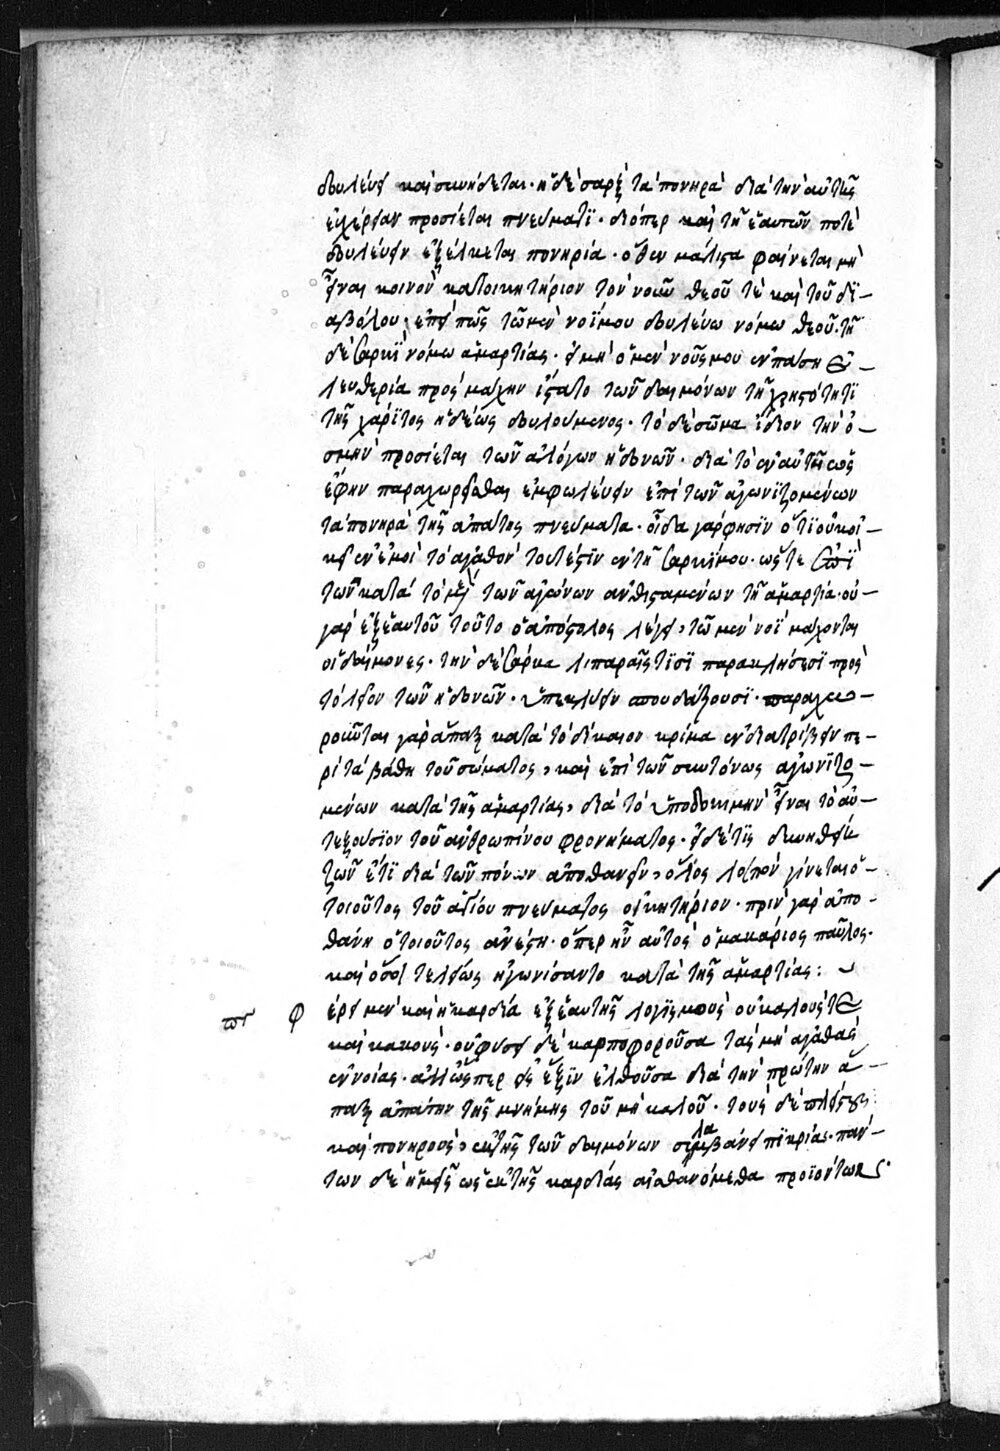 δουλεύει καὶ συνήδεται· ἡ δὲ σαρξ τὰ πονηρὰ διὰ τὴν αὐτῆς
εὐχέρειαν προσίεται πνεύματϊ· διόπερ καὶ τῆ ἑαυτῶν ποτὲ
δουλεύειν ἐξέλκεται πονηρία· ὅθεν μάλιστα φαίνεται μὴ
εἶναι κοινὸν κατοικητήριον τὸν νοῦν θεοῦ τὲ καὶ τοῦ δϊ-
αβόλου· ἐπεὶ πῶς τῶ μὲν νοΐ μου δουλεύω νόμω θεοῦ· τῆ
δὲ σαρκῒ νόμω ἁμαρτίας· εἰ μὴ ὁ μὲν νοῦς μου ἐν πάση ἐ-
λευθερία πρὸς μάχην ἵστατο τῶν δαιμόνων τῆ χρηστότητϊ
τῆς χάρϊτος ἡδέως δουλούμενος· τὸ δὲ σῶμα ἴδιον τὴν ὀ-
σμὴν προσίεται τῶν ἀλόγων ἡδονῶν· διὰ τὸ ἐν αὐτῆ ὡς
ἔφην παραχωρεῖσθαι ἐμφωλεύειν ἐπὶ τῶν ἀγωνϊζομένων
τὰ πονηρὰ τῆς ἀπάτης πνεύματα· οἶδα γάρ φησϊν ὅτϊ οὐκ οἰ-
κεῖ ἐν ἐμοὶ τὸ ἀγαθὸν τουτέστϊν ἐν τῆ σαρκΐ μου· ὥστε ἐπὶ
τῶν κατὰ τὸ τῶν ἀγώνων ἀνθισταμένων τῆ ἁμαρτία· οὐ-
γὰρ ἐξ ἑαυτοῦ τοῦτο ὁ ἀπόστολος λέγει, τῶ μὲν νοῒ μάχονται
οἱ δαίμονες· τὴν δὲ σάρκα λιπαραῖς τϊσϊ παρακλήσεσϊ πρὸς
τὸ λεῖον τῶν ἡδονῶν· ὑπεκλύειν σπουδάζουσϊ· παραχω-
ροῦνται γὰρ ἅπαξ κατὰ τὸ δίκαιον κρίμα ἐνδιατρίβειν πε-
ρὶ τὰ βάθη τοῦ σώματος, καὶ ἐπὶ τῶν συντόνως ἀγωνϊζο-
μένων κατὰ τῆς ἁμαρτίας, διὰ τὸ ὑποδοκιμὴν εἶναι τὸ αὐ-
τεξούσϊον τοῦ ἀνθρωπίνου φρονήματος· εἰ δέ τϊς δυνηθείη
ζῶν ἔτϊ διὰ τῶν πόνων ἀποθανεῖν, ὅλος λοιπὸν γίνεται ὁ-
τοιοῦτος τοῦ ἁγίου πνεύματος οἰκητήριον· πρὶν γὰρ ἀπο-
θάνη ὁ τοιοῦτος ἀνέστη· ὅπερ ἦν αὐτὸς ὁ μακάριος παῦλος·
καὶ ὅσοι τελείως ἠγωνίσαντο κατὰ τῆς ἁμαρτίας:
πγ φέρει μὲν καὶ ἡ καρδία ἐξ ἑαυτῆς λογισμοὺς οὐ καλούς τε
καὶ κακούς· οὐ φύσει δὲ καρποφοροῦσα τὰς μὴ ἀγαθὰς
ἐννοίας· ἀλλ' ὥσπερ εἰς ἕξϊν ἐλθοῦσα διὰ τὴν πρώτην ἅ-
παξ ἀπάτην τῆς μνήμης τοῦ μὴ καλοῦ· τοὺς δὲ πλείστους
καὶ πονηρούς, ἐκ τῆς τῶν δαιμόνων συλλαμβάνει πϊκρίας· πάν-
των δὲ ἡμεῖς ὡς ἐκ τῆς καρδίας αἰσθανόμεθα προϊόντων